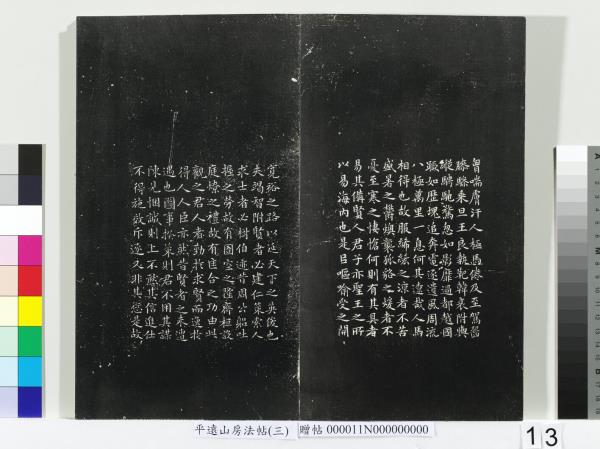 匈喘膚汗人極馬倦及至駕齧
膝驂乘旦王良執靶韓哀附輿
縱騁馳騖忽如影靡過都越國
蹶如歷塊追奔電逐遺風周流
八極萬里一息何其遼哉人馬
相得也故服絺綌之涼者不苦
盛暑之鬱燠襲狐貉之煖者不
憂至寒之悽愴何則有其具者
易其備賢人君子亦聖王之所
以易海內也是㠯嘔喻受之開
寬裕之路以延天下之英俊也
夫竭智附賢者必建仁策索人
求士者必樹伯迹昔周公躬吐
握之勞故有圄空之隆齊桓設
庭燎之禮故有匡合之功由此
觀之君人者勤於求賢而逸於
得人人臣亦然昔賢者之未遭
遇也圖事揆策則君不用其謀
陳見悃誠則上不然其信進仕
不得施效斥逐又非其愆是故
平遠山房法帖(三) 贈帖 000011N000000000
13